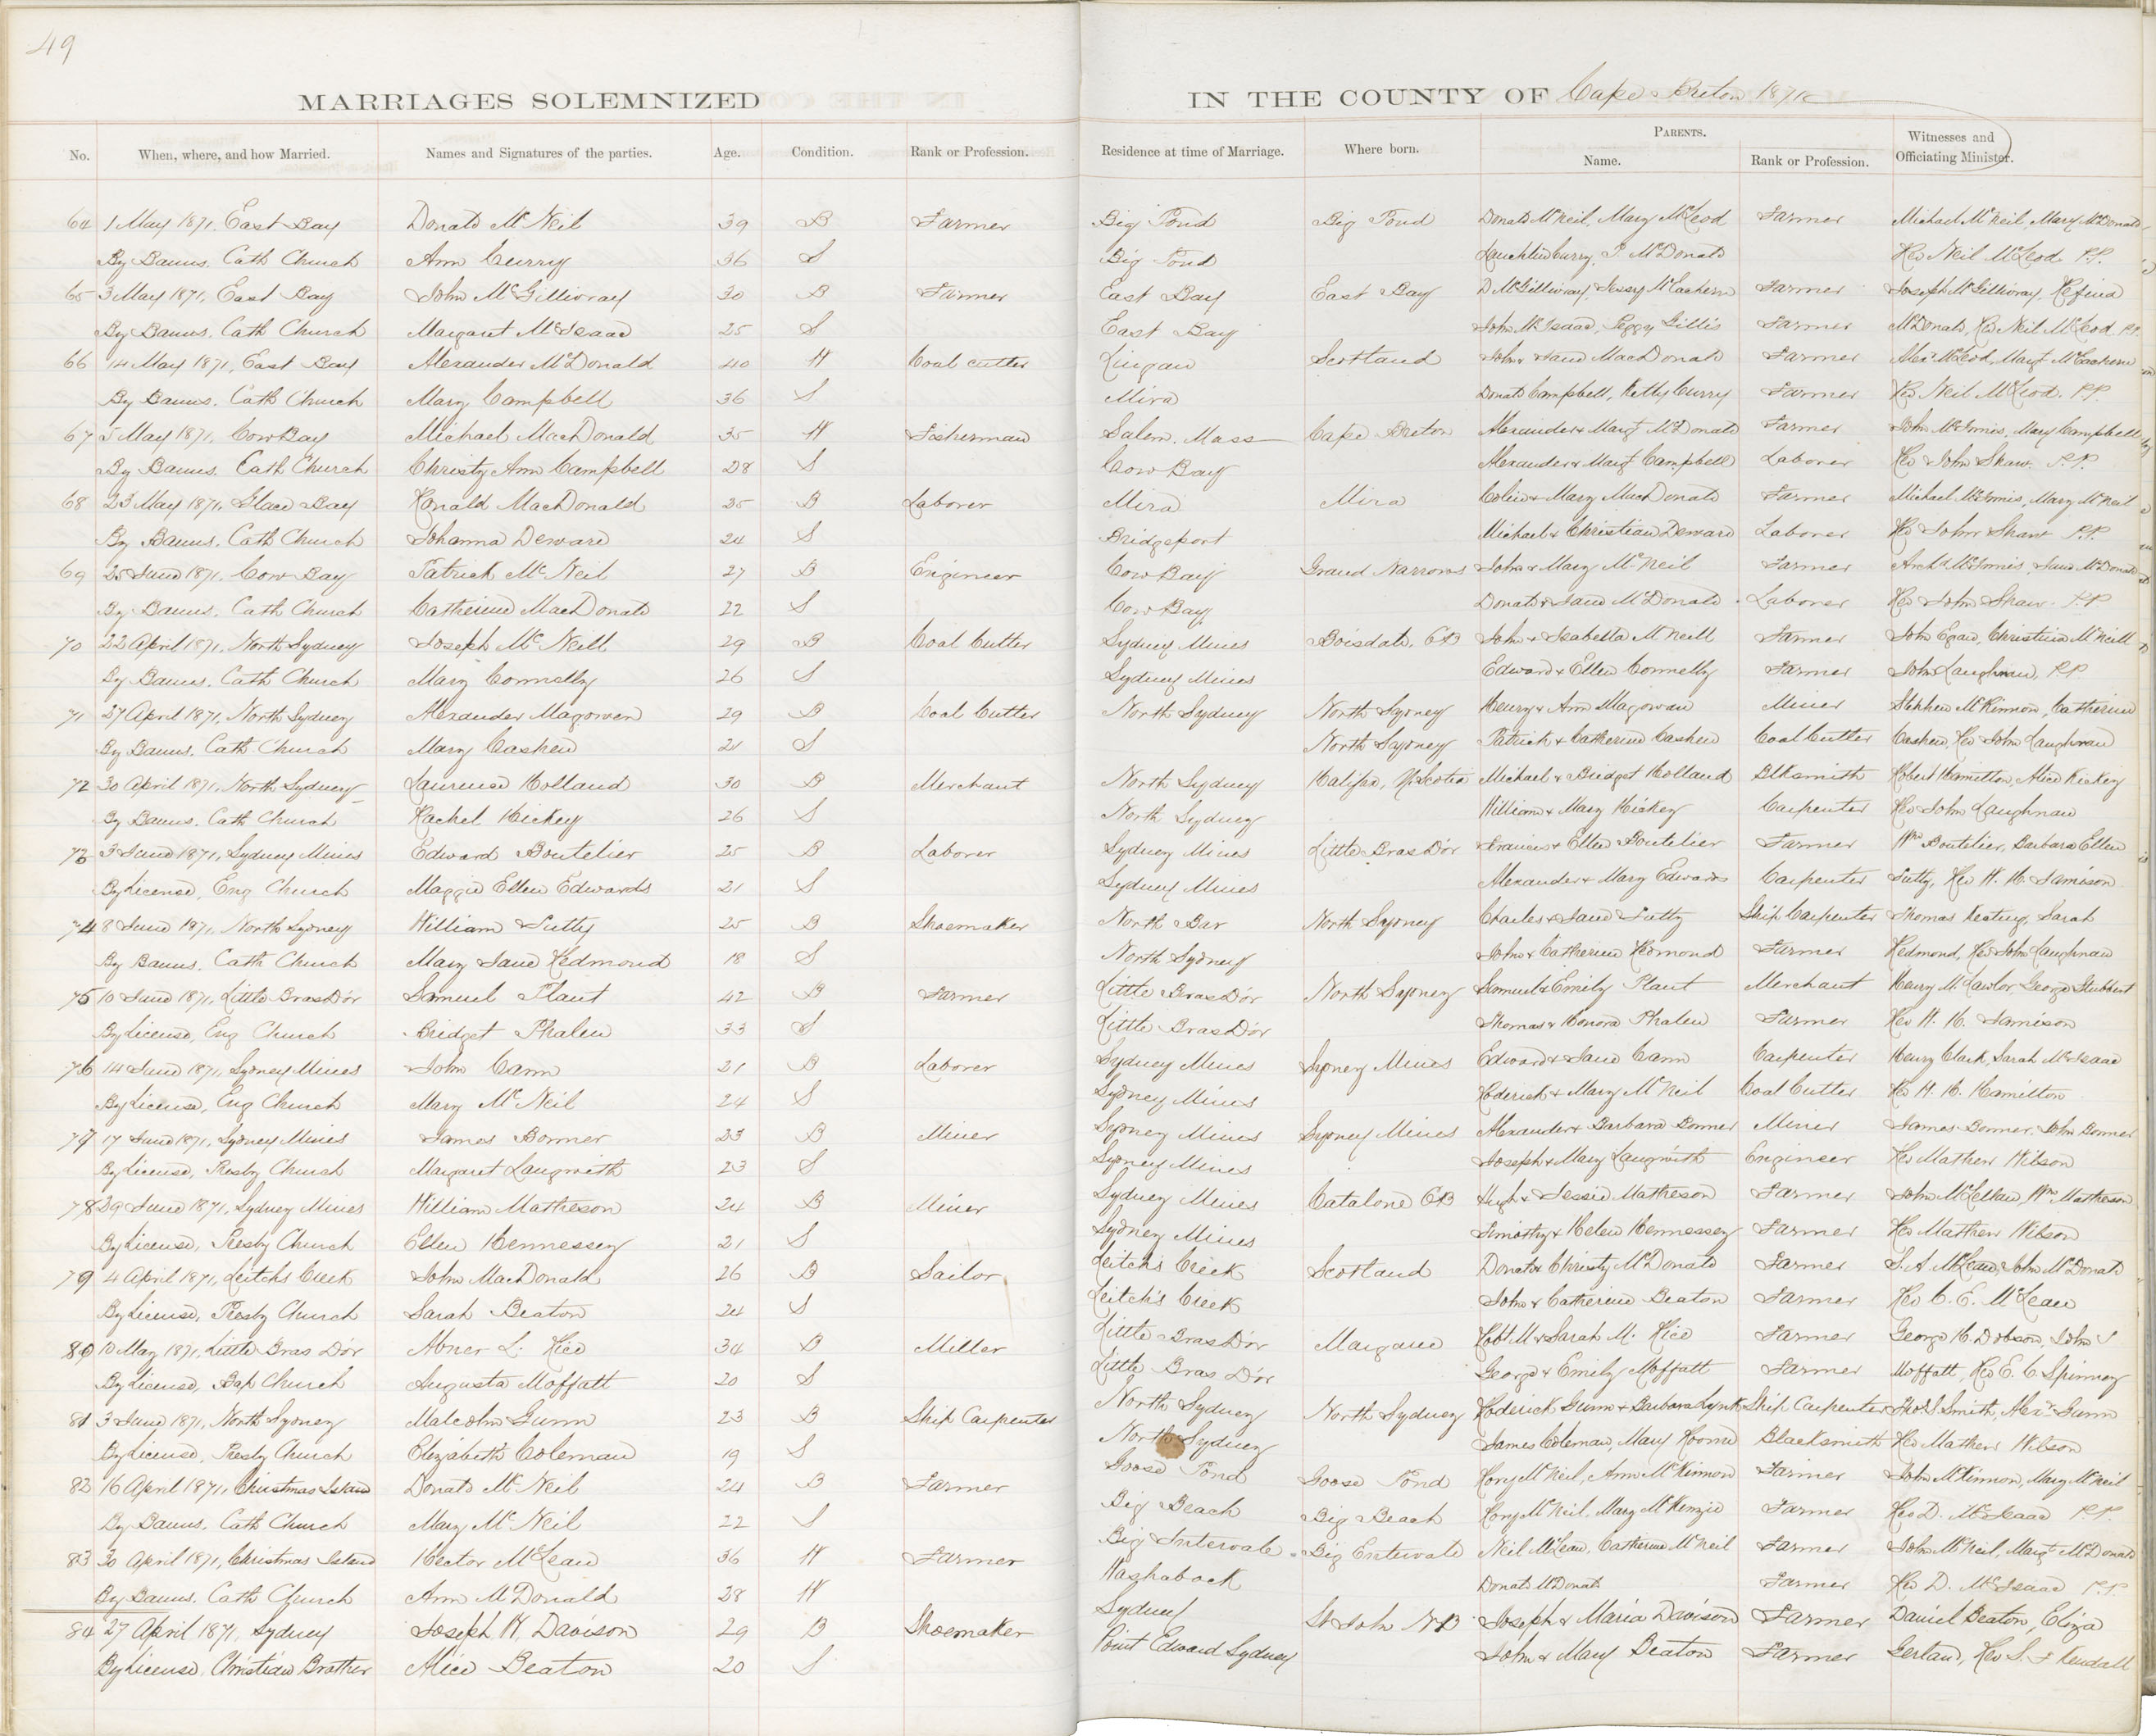 49
MARRIAGES SOLEMNIZED IN THE COUNTY OF Cape Breton 1871
No. When, where, and how Married. Names and Signatures of the parties. Age. Condition. Rank or Profession. Residence at time of Marriage. Where born. PARENTS. Name. Rank or Profession. Witnesses and Officiating Minister.
64 1 May 1871, East Bay Donald McNeil 39 B Farmer Big Pond Big Pond Donald McNeil, Mary McLeod Farmer Michael McNeil, Mary McDonald
By Banns. Cath Church Ann Curry 36 S Big Pond Lauchlin Curry, McDonald Rev Neil McLeod P.P.
65 3 May 1871, East Bay John McGillivray 30 B Farmer East Bay East Bay D McGillivray, Jessy McEachern Farmer Joseph McGillivray,
By Banns. Cath Church Margaret McIsaac 25 S East Bay John McIsaac, Peggy Gillis Farmer McDonald, Rev Neil McLeod P.P.
66 14 May 1871, East Bay Alexander McDonald 40 W Coal cutter Lingan Scotland John & Jane MacDonald Farmer Alexr McLeod, Margt McEachern
By Banns. Cath Church Mary Campbell 36 S Mira Donald Campbell, Kitty Curry Farmer Rev Neil McLeod. P.P.
67 5 May 1871, Cow Bay Michael MacDonald 35 W Fisherman Salem. Mass Cape Breton Alexander & Margt McDonald Farmer John McInnis, Mary Campbell
By Banns. Cath Church Christy Ann Campbell 28 S Cow Bay Alexander & Margt Campbell Laborer Rev John Shaw. P.P.
68 23 May 1871, Glace Bay Ronald MacDonald 25 B Laborer Mira Mira Colin & Mary MacDonald Farmer Michael McInnis, Mary McNeil
By Banns. Cath Church Johanna Deward 24 S Bridgeport Michael & Christian Deward Laborer Rev John Shaw P.P.
69 25 June 1871, Cow Bay Patrick McNeil 27 B Engineer Cow Bay Grand Narrows John & Mary McNeil Farmer Archd McInnis, Jane McDonald
By Banns. Cath Church Catherine MacDonald 22 S Cow Bay Donald & Jane McDonald Laborer Rev John Shaw. P.P.
70 22 April 1871, North Sydney Joseph McNeill 29 B Coal Cutter Sydney Mines Boisdale, CB John & Isabella McNeill Farmer John Egan, Christina McNeill
By Banns. Cath Church Mary Connelly 26 S Sydney Mines Edward & Ellen Connelly Farmer John Laughnan, P.P.
71 27 April 1871, North Sydney Alexander Magowen 29 B Coal Cutter North Sydney North Sydney Henry & Ann Magowan Miner Stephen McKinnon, Catherine
By Banns. Cath Church Mary Cashen 21 S North Sydney Patrick & Catherine Cashen Coal Cutter Cashen, Rev John Laughnan
72 30 April 1871, North Sydney Laurence Holland 30 B Merchant North Sydney Halifax, N. Scotia Michael & Bridget Holland Blksmith Robert Hamilton, Alice Hickey
By Banns. Cath Church Rachel Hickey 26 S North Sydney William & Mary Hickey Carpenter Rev John Laughnan
73 3 June 1871, Sydney Mines Edward Boutelier 25 B Laborer Sydney Mines Little Bras D'or Francis & Ellen Boutelier Farmer Wm Boutilier, Barbara Ellen
By License, Eng Church Maggie Ellen Edwards 21 S Sydney Mines Alexander & Mary Edwards Carpenter Tutty, Rev W. H. Jamison
74 8 June 1871, North Sydney William Tutty 25 B Shoemaker North Bar North Sydney Charles & Jane Tutty Ship Carpenter Thomas Keating, Sarah
By Banns. Cath Church Mary Jane Redmond 18 S North Sydney John & Catherine Redmond Farmer Redmond, Rev John Laughnan
75 10 June 1871, Little Bras D'or Samuel Plant 42 B Farmer Little Bras D'or North Sydney Samuel & Emily Plant Merchant Henry M Lawlor George Stubbert
By License, Eng Church Bridget Phalen 33 S Little Bras D'or Thomas & Honora Phalen Farmer Rev W. H. Jamison
76 14 June 1871, Sydney Mines John Cann 21 B Laborer Sydney Mines Sydney Mines Edward & Jane Cann Carpenter Henry Clark, Sarah McIsaac
By License, Eng Church Mary McNeil 24 S Sydney Mines Roderick & Mary McNeil Coal Cutter Rev H. H. Hamilton
77 17 June 1871, Sydney Mines James Bonner 23 B Miner Sydney Mines Sydney Mines Alexander & Barbara Bonner Miner James Bonner, John Bonner
By License, Presby Church Margaret Langwith 23 S Sydney Mines Joseph & Mary Langwith Engineer Rev Mathew Wilson
78 29 June 1871, Sydney Mines William Matheson 24 B Miner Sydney Mines Catalone CB Hugh & Jessie Matheson Farmer John McLellan, Wm Matheson
By License, Presby Church Ellen Hennessey 21 S Sydney Mines Timothy & Helen Hennessey Farmer Rev Mathew Wilson
79 4 April 1871, Leitchs Creek John MacDonald 26 B Sailor Leitch's Creek Scotland Donald & Christy McDonald Farmer S. A. McLean, John McDonald
By License, Presby Church Sarah Beaton 24 S Leitch's Creek John & Catherine Beaton Farmer Rev C. E. McLean
80 10 May 1871, Little Bras D'or Abner L. Rice 34 B Miller Little Bras D'or Margaree Robt M & Sarah M. Rice Farmer George H. Dobson, John S
By License, Bap Church Augusta Moffatt 20 S Little Bras D'or George & Emily Moffatt Farmer Moffatt, Rev E. C. Spinney
81 3 June 1871, North Sydney Malcolm Gunn 23 B Ship Carpenter North Sydney North Sydney Roderick Gunn & Barbara Lynk Ship Carpenter Thos S Smith, Alexr Gunn
By License, Presby Church Elizabeth Coleman 19 S North Sydney James Coleman, Mary Roome Blacksmith Rev Mathew Wilson
82 16 April 1871, Christmas Island Donald McNeil 24 B Farmer Goose Pond Goose Pond Rory McNeil, Ann McKinnon Farmer John McKinnon, Mary McNeil
By Banns. Cath Church Mary McNeil 22 S Big Beach Big Beach Rory McNeil, Mary McKenzie Farmer Rev D. McIsaac P.P.
83 30 April 1871, Christmas Island Hector McLean 36 W Farmer Big Intervale Big Entervale Neil McLean, Catherine McNeil Farmer John McNeil, Margt McDonald
By Banns. Cath Church Ann McDonald 28 W Washaback Donald McDonald Farmer Rev D. McIsaac P.P.
84 27 April 1871, Sydney Joseph W. Davison 29 B Shoemaker Sydney St John N.B Joseph & Maria Davison Farmer Daniel Beaton, Eliza
By License, Christian Brother Alice Beaton 20 S Point Edward Sydney John & Mary Beaton Farmer Gerland, Rev S. F Kendall